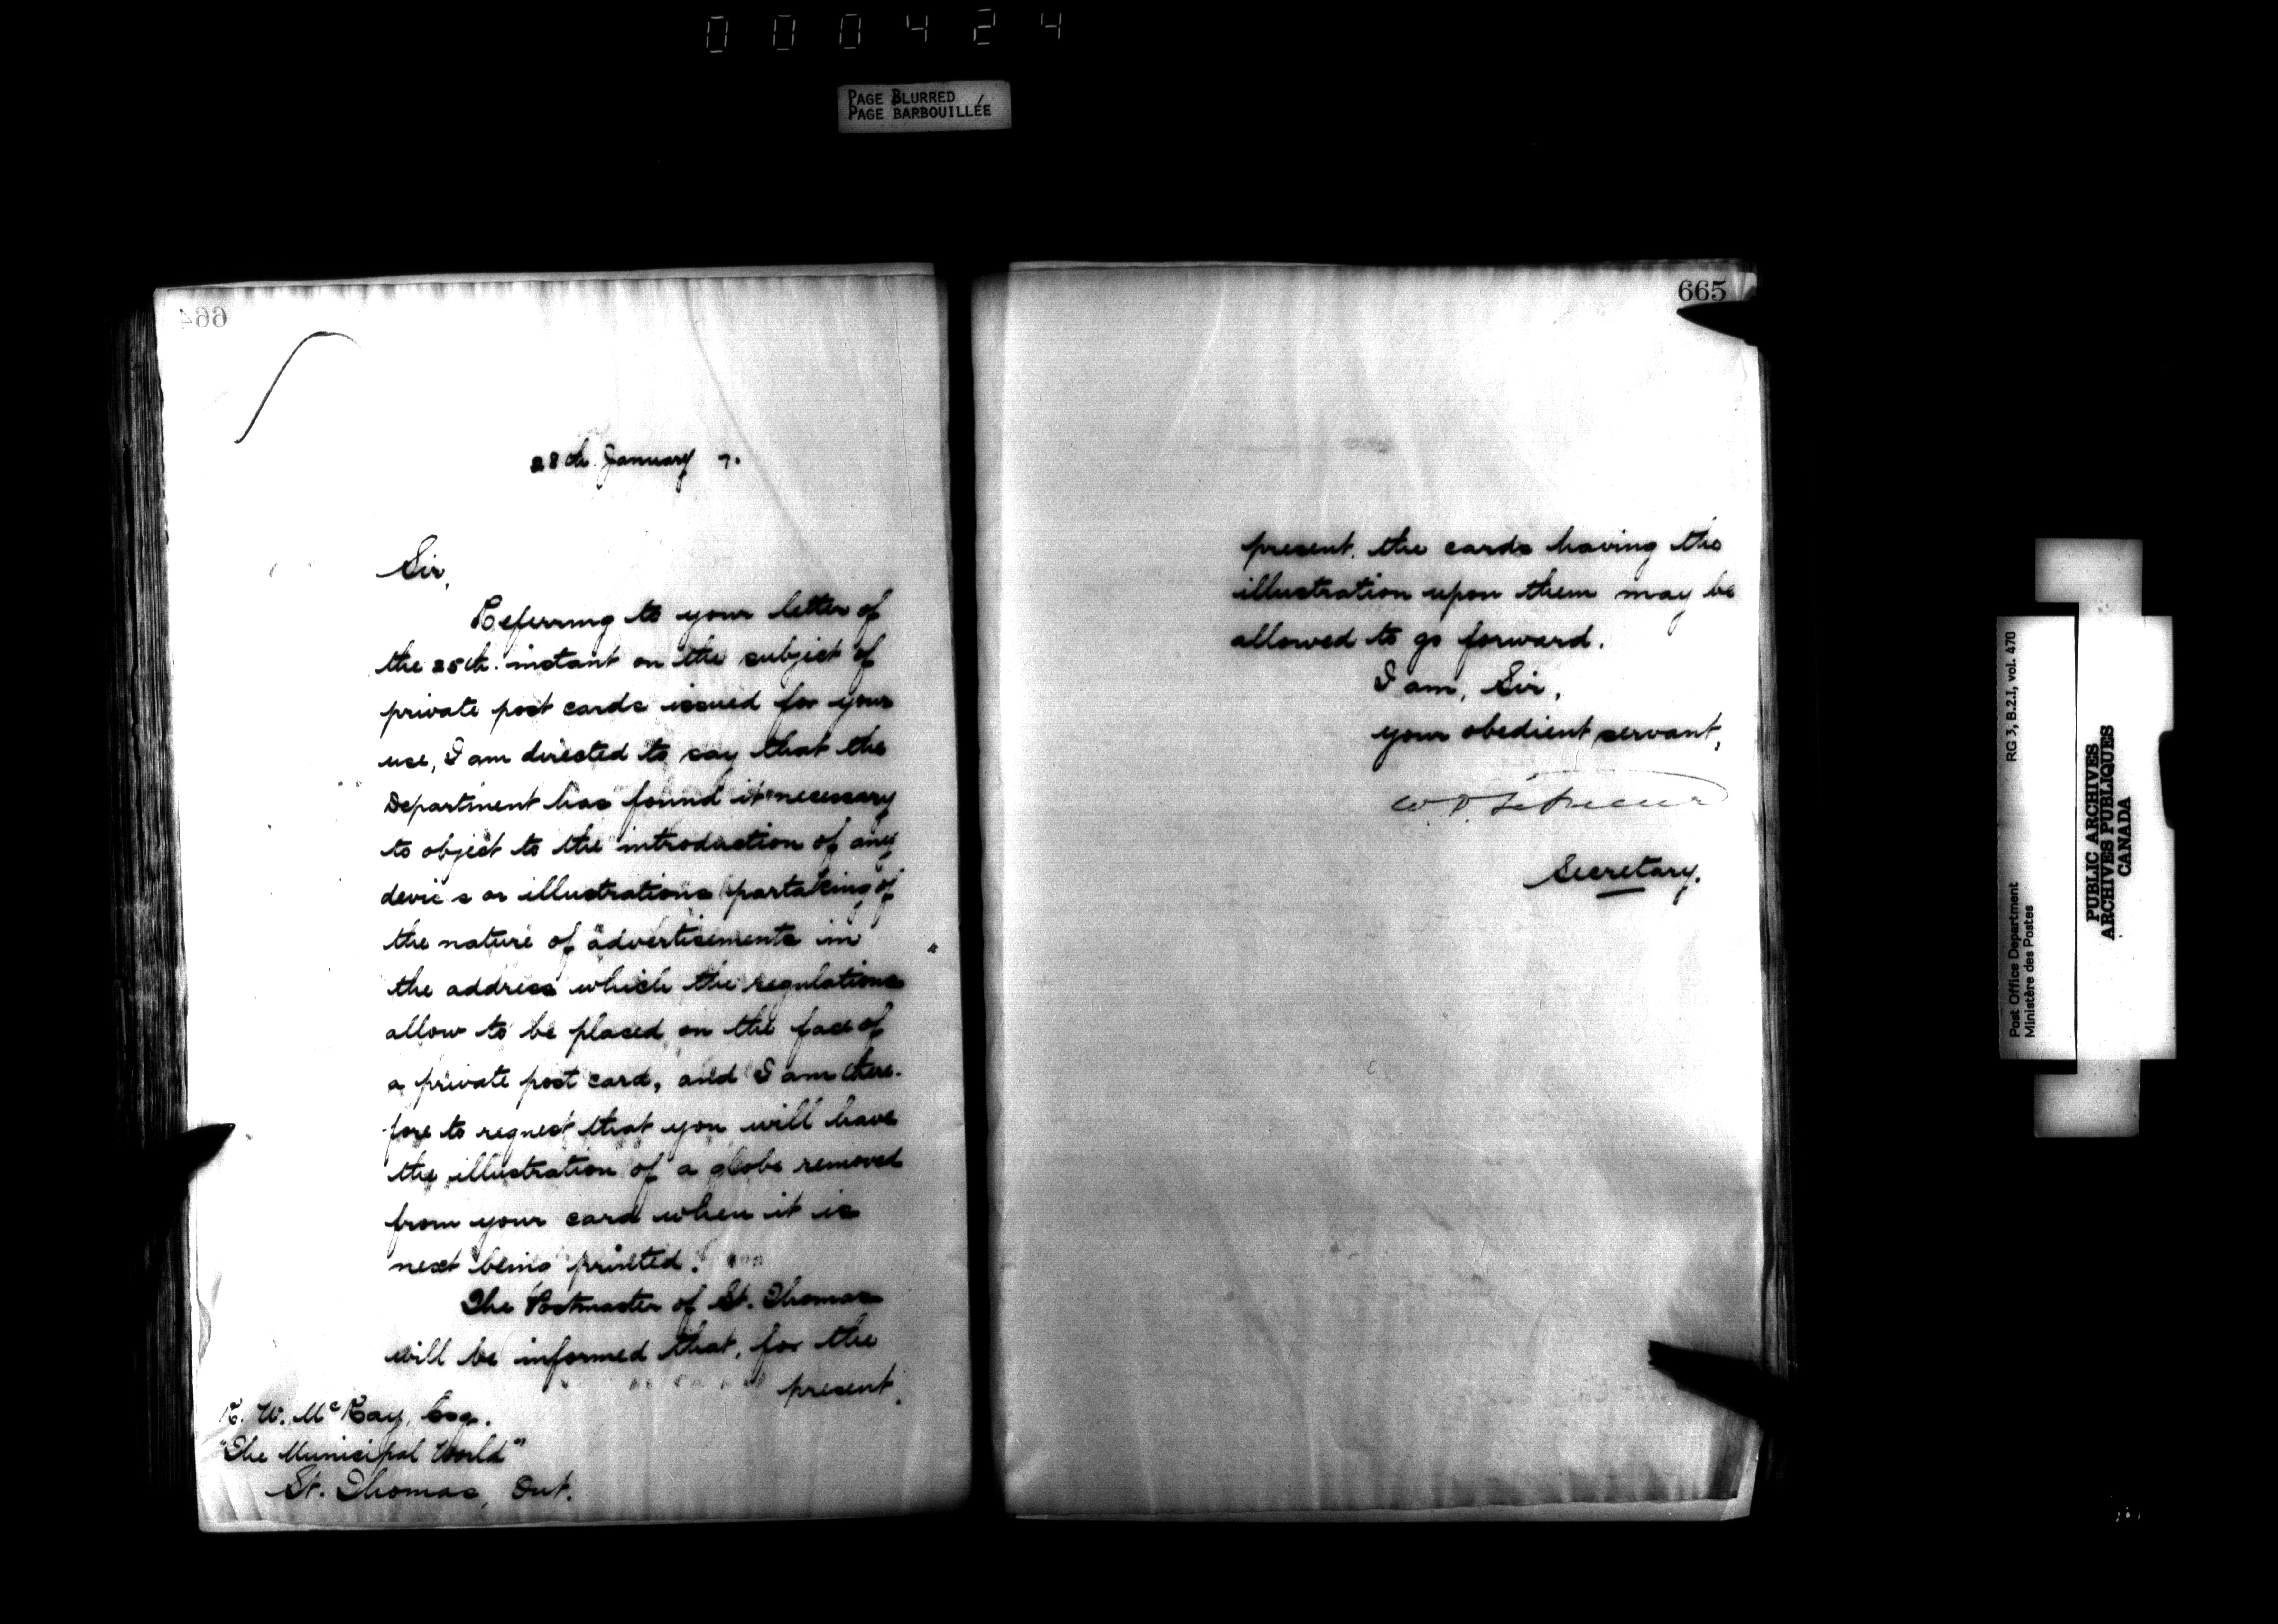 000424
PAGE BLURRED
PAGE BARBOUILLÉE
664
28th. January 7.
Sir,
Referring to your letter of
the 25th. instant on the subject of
private post cards issued for your
use, I am directed to say that the
Department has found it necessary
to object to the introduction of any
devices or illustrations partaking of
the nature of advertisements in
the address which the regulations
allow to be placed on the face of
a private post card, and I am there-
fore to request that you will have
the illustration of a globe removed
from your card when it is
next being printed.
The Postmaster of St. Thomas
will be informed that, for the
present,
R. W. McKay, Esq.
"The Municipal World"
St. Thomas, Ont.
665
present, the cards having the
illustration upon them may be
allowed to go forward.
I am, Sir,
your obedient servant,
W. D.
Secretary.
Post Office Department
Ministère des Postes
RG 3, B.2.I, vol. 470
PUBLIC ARCHIVES
ARCHIVES PUBLIQUES
CANADA